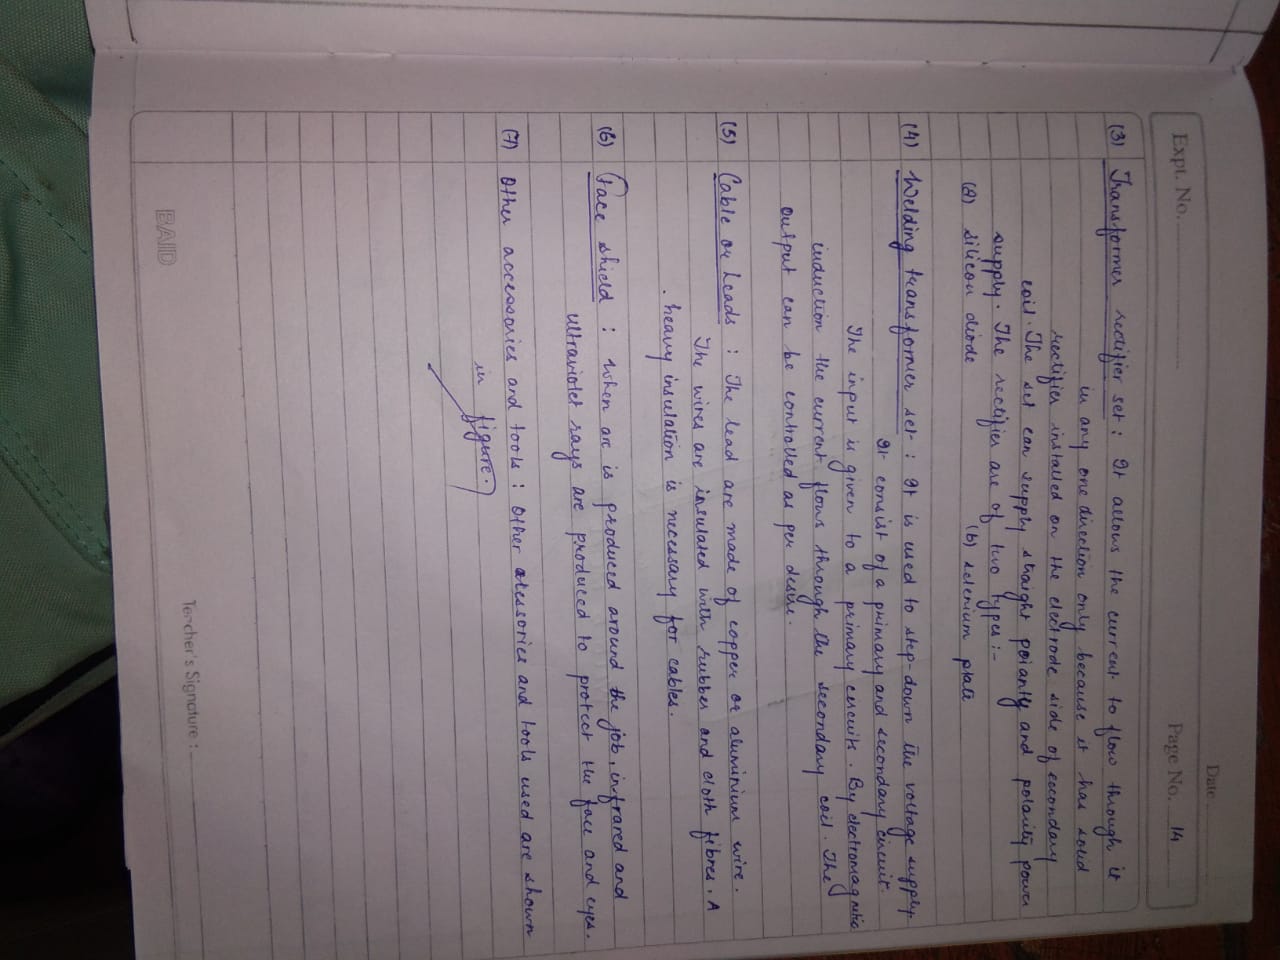 Date
Expt. No.
Page No. 14
(3) Transformer rectifier set : It allows the current to flow through it
in any one direction only because it has solid
rectifier installed on the electrode side of secondary
coil. The set can supply straight polarity and polarity power
supply. The rectifier are of two types:-
(a) silicon diode (b) selenium plate
(4) Welding transformer set : It is used to step-down the voltage supply.
It consist of a primary and secondary circuit.
The input is given to a primary circuit. By electromagnetic
induction the current flows through the secondary coil. The
output can be controlled as per desire.
(5) Cable or Leads : The lead are made of copper or aluminium wire.
The wires are insulated with rubber and cloth fibres. A
heavy insulation is necessary for cables.
(6) Face shield : When arc is produced around the job, infrared and
ultraviolet rays are produced to protect the face and eyes.
(7) Other accessories and tools : Other acessories and tools used are shown
in figure.
BAID
Teacher's Signature :